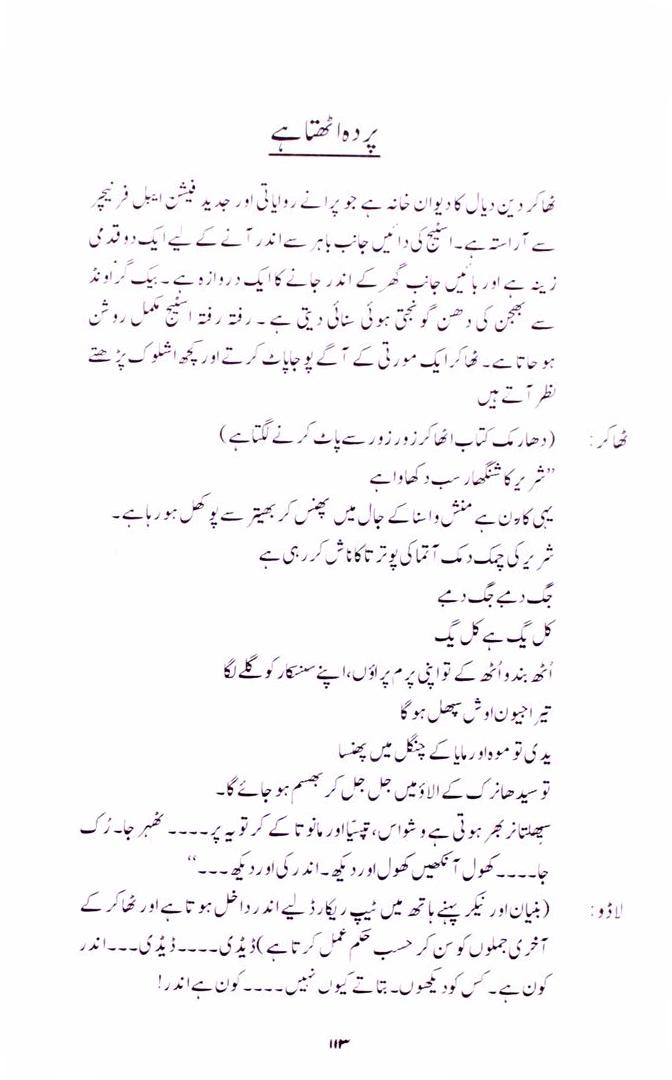 پردہ اٹھتا ہے
ٹھاکر دین دیال کا دیوان خانہ ہے جو پرانے روایاتی اور جدید فیشن ایبل فرنیچر
سے آراستہ ہے۔ اسٹیج کی دائیں جانب باہر سے اندر آنے کے لیے ایک دو قدمی
زینہ ہے اور بائیں جانب گھر کے اندر جانے کا ایک دروازہ ہے۔ بیک گراونڈ
سے بھجن کی دھن گونجتی ہوئی سنائی دیتی ہے ۔ رفتہ رفتہ اسٹیج مکمل روشن
ہو جاتا ہے۔ ٹھاکر ایک مورتی کے آگے پوجا پاٹ کرتے اور کچھ اشلوک پڑھتے
نظر آتے ہیں
ٹھاکر: (دھارمک کتاب اٹھا کر زور زور سے پاٹ کرنے لگتا ہے)
”شریر کا شنگھار سب دکھاوا ہے
یہی کارن ہے منش واسنا کے جال میں پھنس کر بھیتر سے پوکھل ہو رہا ہے۔
شریر کی چمک دمک آتما کی پوترتا کا ناش کر رہی ہے
جگ دمبے جگ دمبے
کل یگ ہے کل یگ
اُٹھ بندو اُٹھ کے تو اپنی پرم پراؤں، اپنے سنسکار کو گلے لگا
تیرا جیون اوش سپھل ہو گا
یدی تو موہ اور مایا کے چنگل میں پھنسا
تو سیدھا نرک کے الاؤ میں جل جل کر بھسم ہو جائے گا۔
سپھلتا نربھر ہوتی ہے وشواس، تپسیّا اور مانوتا کے کرتویہ پر۔۔۔۔ ٹھہر جا۔ رُک
جا۔۔۔۔ کھول آنکھیں کھول اور دیکھ۔ اندر کی اور دیکھ۔۔۔“
لاڈو: (بنیان اور نیکر پہنے ہاتھ میں ٹیپ ریکارڈ لیے اندر داخل ہوتا ہے اور ٹھاکر کے
آخری جملوں کو سن کر حسب حکم عمل کرتا ہے) ڈیڈی۔۔۔۔ ڈیڈی۔۔۔ اندر
کون ہے۔ کس کو دیکھوں۔ بتاتے کیوں نہیں۔۔۔۔ کون ہے اندر!
۱۱۳